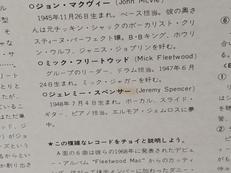 ○ジョン・マクヴィー (John McVie)
1945年11月26日生まれ。ベース担当。彼の奥さ
んは元チッキン・シャックのボーカリスト・クリ
スティーヌ・パーフェクト嬢。B・B・キング、ホウリ
ン・ウルフ、ジャニス・ジョプリンを好む。
○ミック・フリートウッド (Mick Fleetwood)
グループのリーダー、ドラム担当。1947年6月
24日生まれ。ミック・ジャガーを好む。
○ジェレミー・スペンサー (Jeremy Spencer)
1948年7月4日生まれ。ボーカル、スライド・
ギター、ピアノ担当。エルモア・ジェイムスに夢
中。
★この複雑なレコードをチョイと説明しよう。
A面の6曲は彼らの1968年に発表されたデビュ
ー・アルバム"Fleetwood Mac"からのカッティ